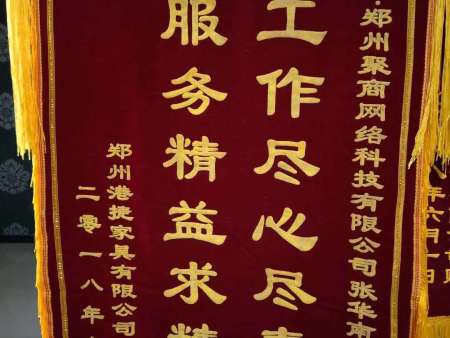 郑州聚商网络科技有限公司张华南
工作尽心尽责
服务精益求精
郑州港捷家具有限公司
二零一八年
年六月一日